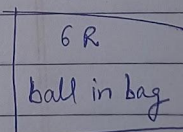 6 R
ball in bag